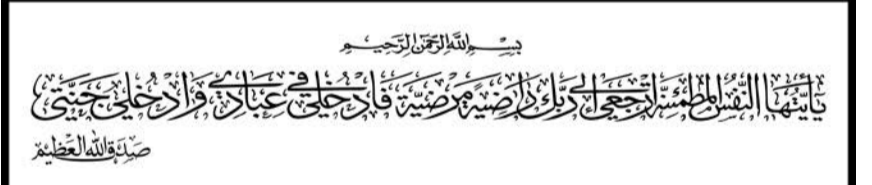 بِسْمِ اللَّهِ الرَّحْمَٰنِ الرَّحِيمِ
يَا أَيَّتُهَا النَّفْسُ الْمُطْمَئِنَّةُ ارْجِعِي إِلَىٰ رَبِّكِ رَاضِيَةً مَرْضِيَّةً فَادْخُلِي فِي عِبَادِي وَادْخُلِي جَنَّتِي
صَدَقَ اللَّهُ الْعَظِيمُ